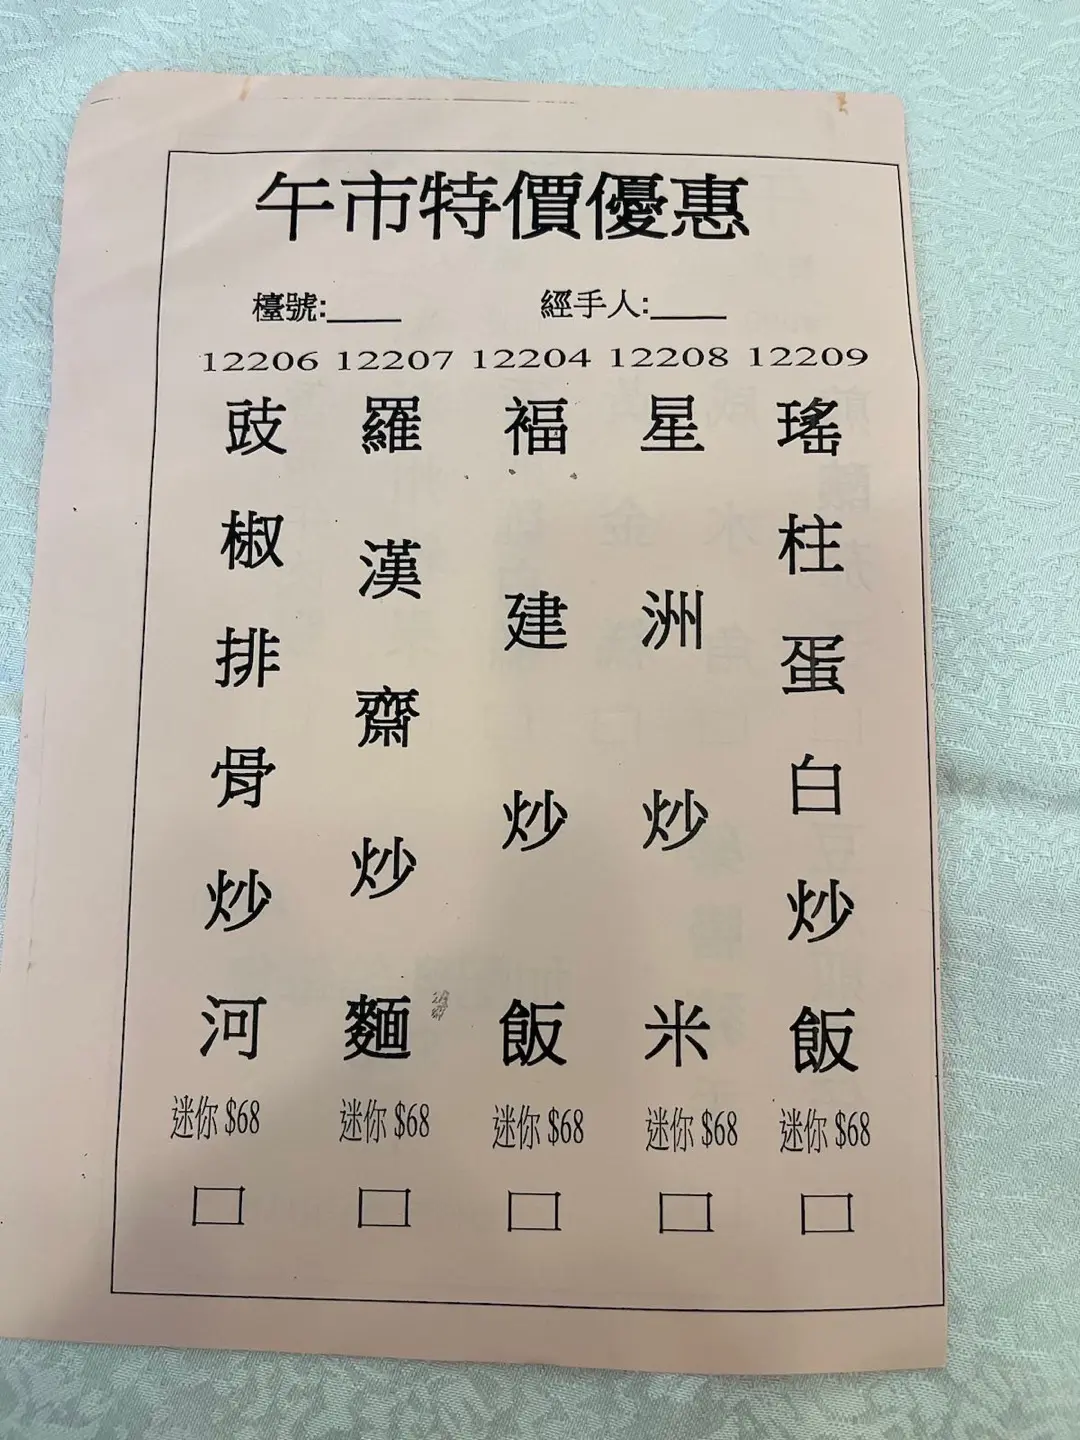 午市特價優惠
檯號:____ 經手人:____
12206 12207 12204 12208 12209
豉椒排骨炒河
羅漢齋炒麵
褔建炒飯
星洲炒米
瑤柱蛋白炒飯
迷你 $68 迷你 $68 迷你 $68 迷你 $68 迷你 $68